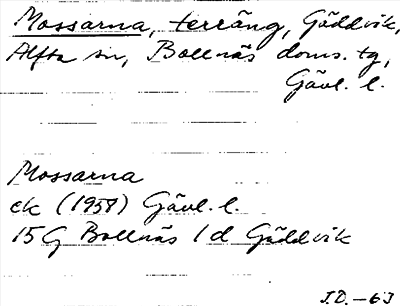 Mossarna, terräng, Gäddvik,
Alfta sn, Bollnäs doms. tg,
Gävl. l.
Mossarna
ek (1958) Gävl. l.
15G Bollnäs 1d Gäddvik
J.D. – 63